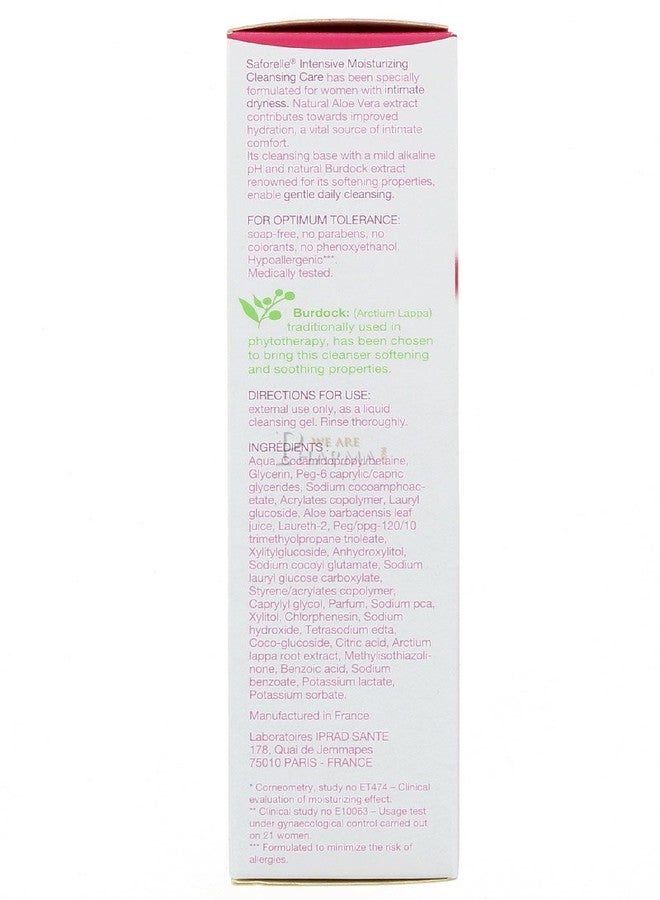 Saforelle® Intensive Moisturizing
Cleansing Care has been specially
formulated for women with intimate
dryness. Natural Aloe Vera extract
contributes towards improved
hydration, a vital source of intimate
comfort.
Its cleansing base with a mild alkaline
pH and natural Burdock extract
renowned for its softening properties,
enable gentle daily cleansing.
FOR OPTIMUM TOLERANCE:
soap-free, no parabens, no
colorants, no phenoxyethanol.
Hypoallergenic***.
Medically tested.
Burdock: (Arctium Lappa)
traditionally used in
phytotherapy, has been chosen
to bring this cleanser softening
and soothing properties.
DIRECTIONS FOR USE:
external use only, as a liquid
cleansing gel. Rinse thoroughly.
INGREDIENTS:
WE ARE
PHARMA
Aqua, Cocamidopropyl betaine,
Glycerin, Peg-6 caprylic/capric
glycerides, Sodium cocoamphoac-
etate, Acrylates copolymer, Lauryl
glucoside, Aloe barbadensis leaf
juice, Laureth-2, Peg/ppg-120/10
trimethylolpropane trioleate,
Xylitylglucoside, Anhydroxylitol,
Sodium cocoyl glutamate, Sodium
lauryl glucose carboxylate,
Styrene/acrylates copolymer,
Caprylyl glycol, Parfum, Sodium pca,
Xylitol, Chlorphenesin, Sodium
hydroxide, Tetrasodium edta,
Coco-glucoside, Citric acid, Arctium
lappa root extract, Methylisothiazoli-
none, Benzoic acid, Sodium
benzoate, Potassium lactate,
Potassium sorbate.
Manufactured in France
Laboratoires IPRAD SANTE
178, Quai de Jemmapes
75010 PARIS - FRANCE
* Corneometry, study no ET474 – Clinical
evaluation of moisturizing effect.
** Clinical study no E10063 – Usage test
under gynaecological control carried out
on 21 women.
*** Formulated to minimize the risk of
allergies.